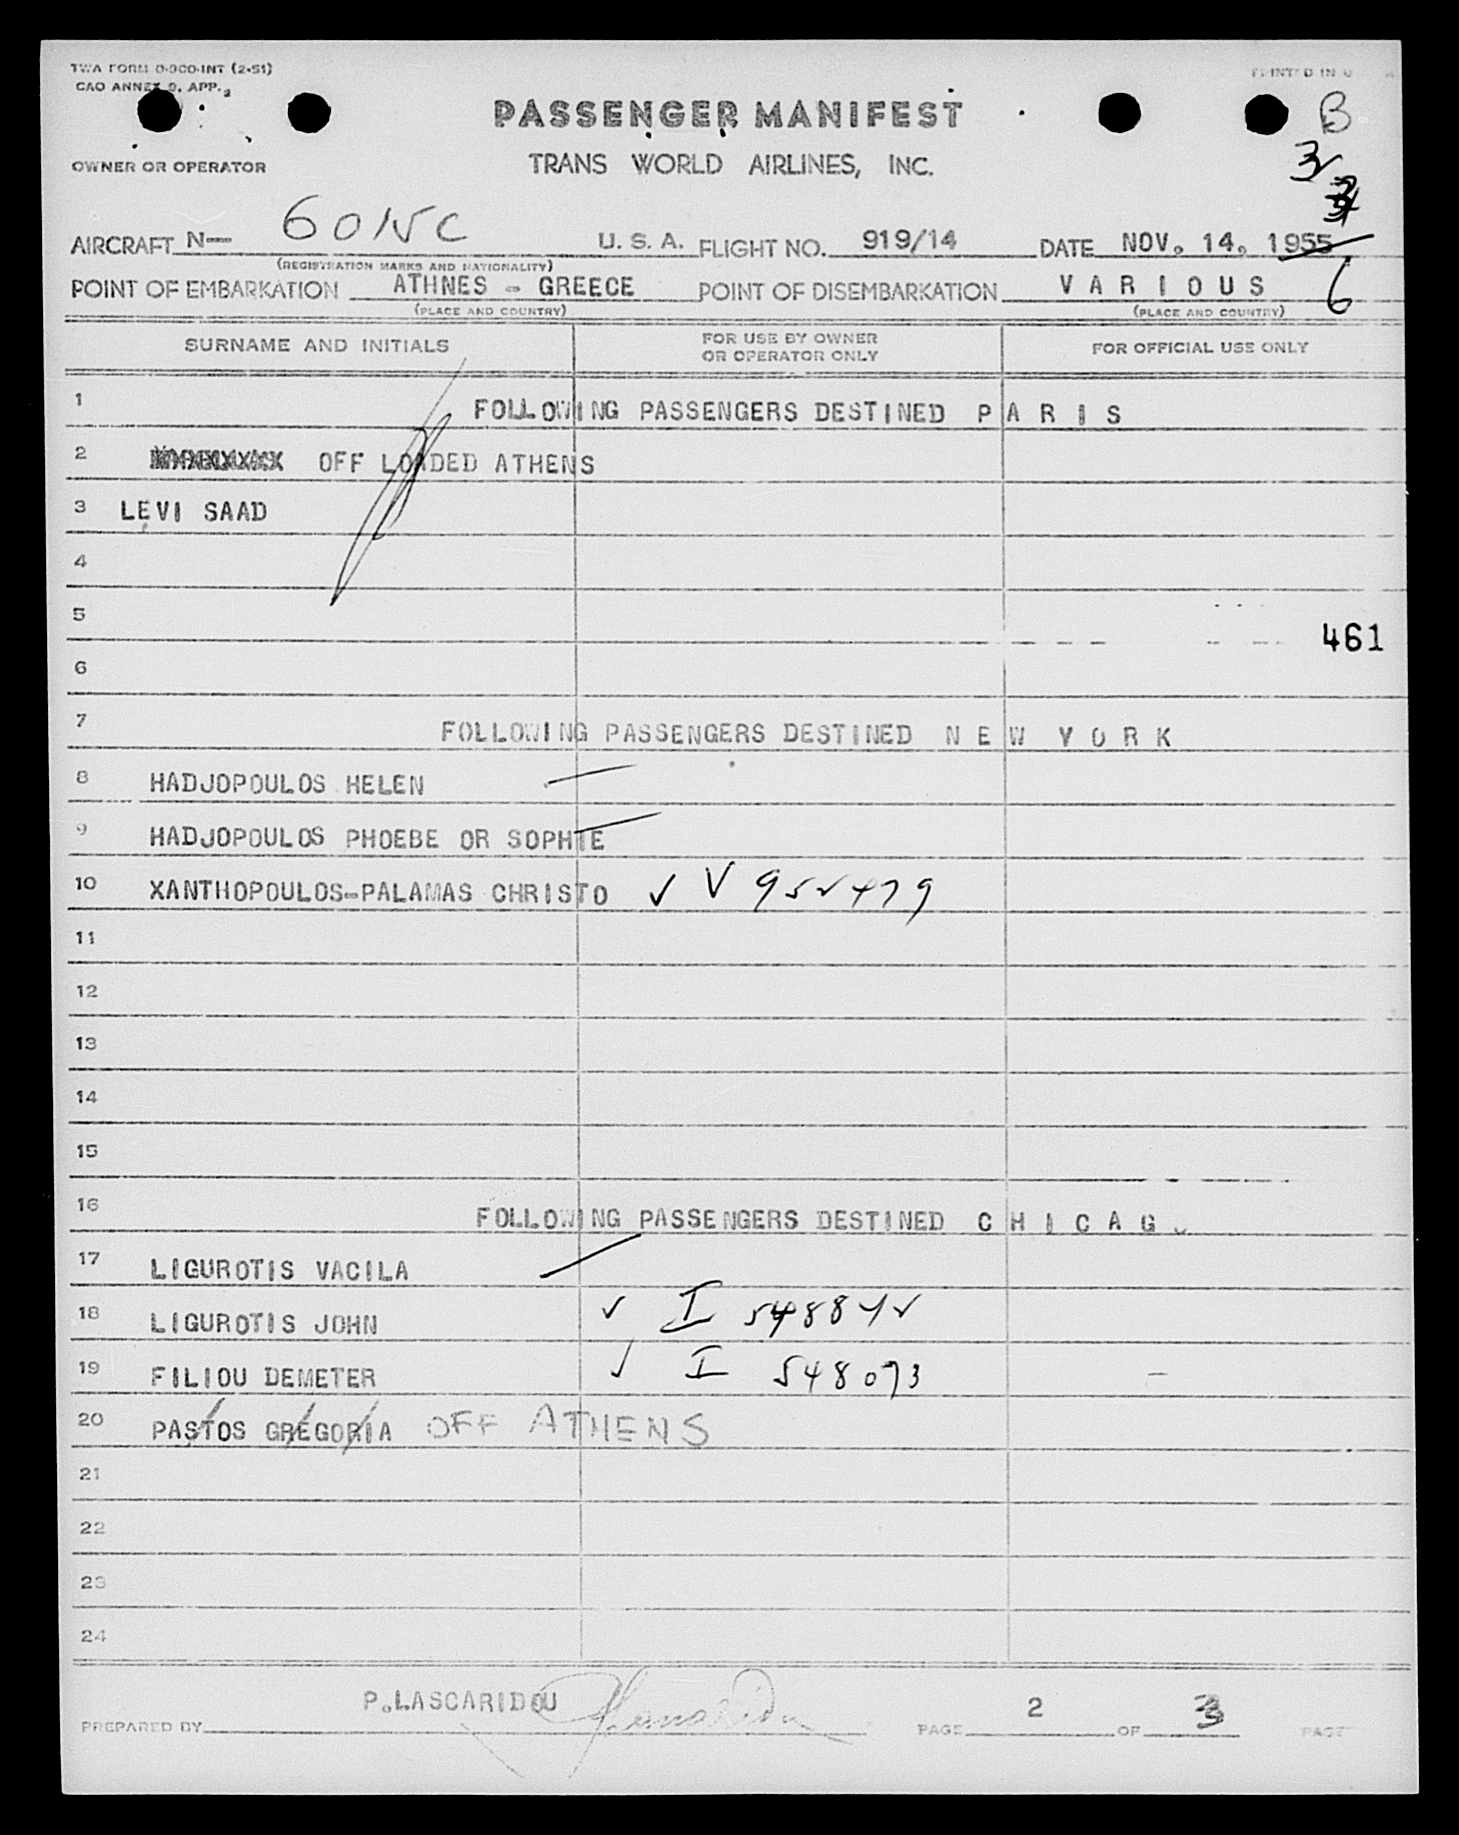 TWA FORM O-900-INT (2-51)
CAO ANNEX 9, APP. 2
PRINTED IN U
PASSENGER MANIFEST
B
OWNER OR OPERATOR
TRANS WORLD AIRLINES, INC.
3
AIRCRAFT N— 6015C U. S. A. FLIGHT NO. 919/14 DATE NOV. 14. 1955
(REGISTRATION MARKS AND NATIONALITY)
POINT OF EMBARKATION ATHNES - GREECE POINT OF DISEMBARKATION V A R I O U S 6
(PLACE AND COUNTRY) (PLACE AND COUNTRY)
SURNAME AND INITIALS FOR USE BY OWNER OR OPERATOR ONLY FOR OFFICIAL USE ONLY
1 FOLLOWING PASSENGERS DESTINED P A R I S
2 OFF LOADED ATHENS
3 LEVI SAAD
4
5
461
6
7 FOLLOWING PASSENGERS DESTINED N E W Y O R K
8 HADJOPOULOS HELEN
9 HADJOPOULOS PHOEBE OR SOPHIE
10 XANTHOPOULOS-PALAMAS CHRISTO ✓ V 952479
11
12
13
14
15
16 FOLLOWING PASSENGERS DESTINED C H I C A G
17 LIGUROTIS VACILA
18 LIGUROTIS JOHN ✓ I 
19 FILIOU DEMETER ✓ I 548073 —
20 PASTOS GREGORIA OFF ATHENS
21
22
23
24
PREPARED BY P.LASCARIDOU PAGE 2 OF 3 PAGE